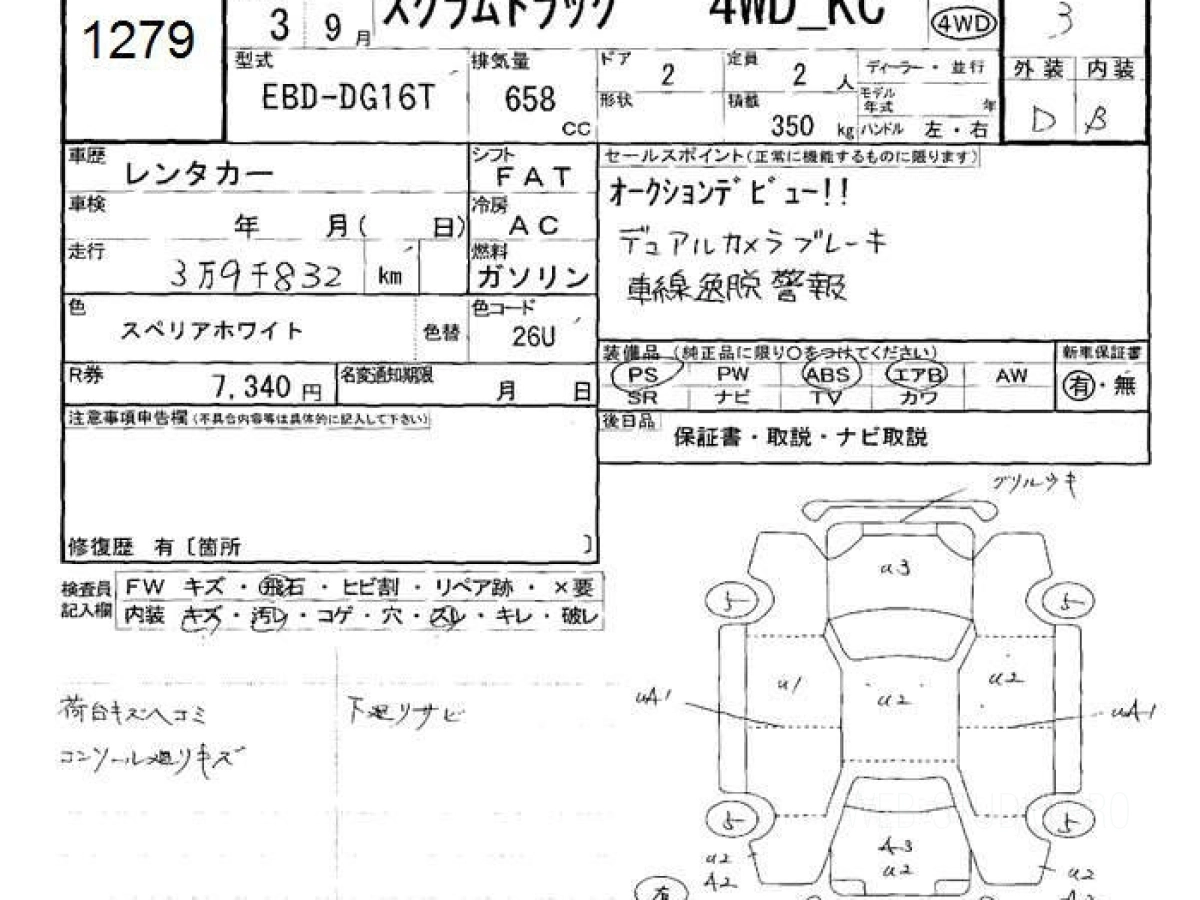 1279
3 9 月 スクラムトラック 4WD_KC 4WD 3
型式 EBD-DG16T
排気量 658 CC
ドア 2 定員 2 人 ディーラー ・ 並行
形状 積載 350 kg モデル年式 年
ハンドル 左・右
外装 内装
D B
車歴 レンタカー
シフト FAT
車検 年 月( 日)
冷房 AC
走行 3万9千832 km
燃料 ガソリン
色 スペリアホワイト 色替
色コード 26U
R券 7,340 円 名変通知期限 月 日
セールスポイント(正常に機能するものに限ります)
オークションデビュー!!
デュアルカメラブレーキ
車線逸脱警報
装備品 (純正品に限り○をつけてください) 新車保証書
PS PW ABS エアB AW 有・無
SR ナビ TV カワ
後日品 保証書・取説・ナビ取説
注意事項申告欄(不具合内容等は具体的に記入して下さい)
修復歴 有〔箇所 〕
検査員記入欄
FW キズ ・ 飛石 ・ ヒビ割 ・ リペア跡 ・ ×要
内装 キズ ・ 汚レ ・ コゲ ・ 穴 ・ スレ ・ キレ ・ 破レ
荷台キズヘコミ 下廻りサビ
コンソール廻りキズ
グリルウキ
U3
5 5
U1 U2 U2
UA1 UA1
5 5
A3
U2
U2 A2
U2
有